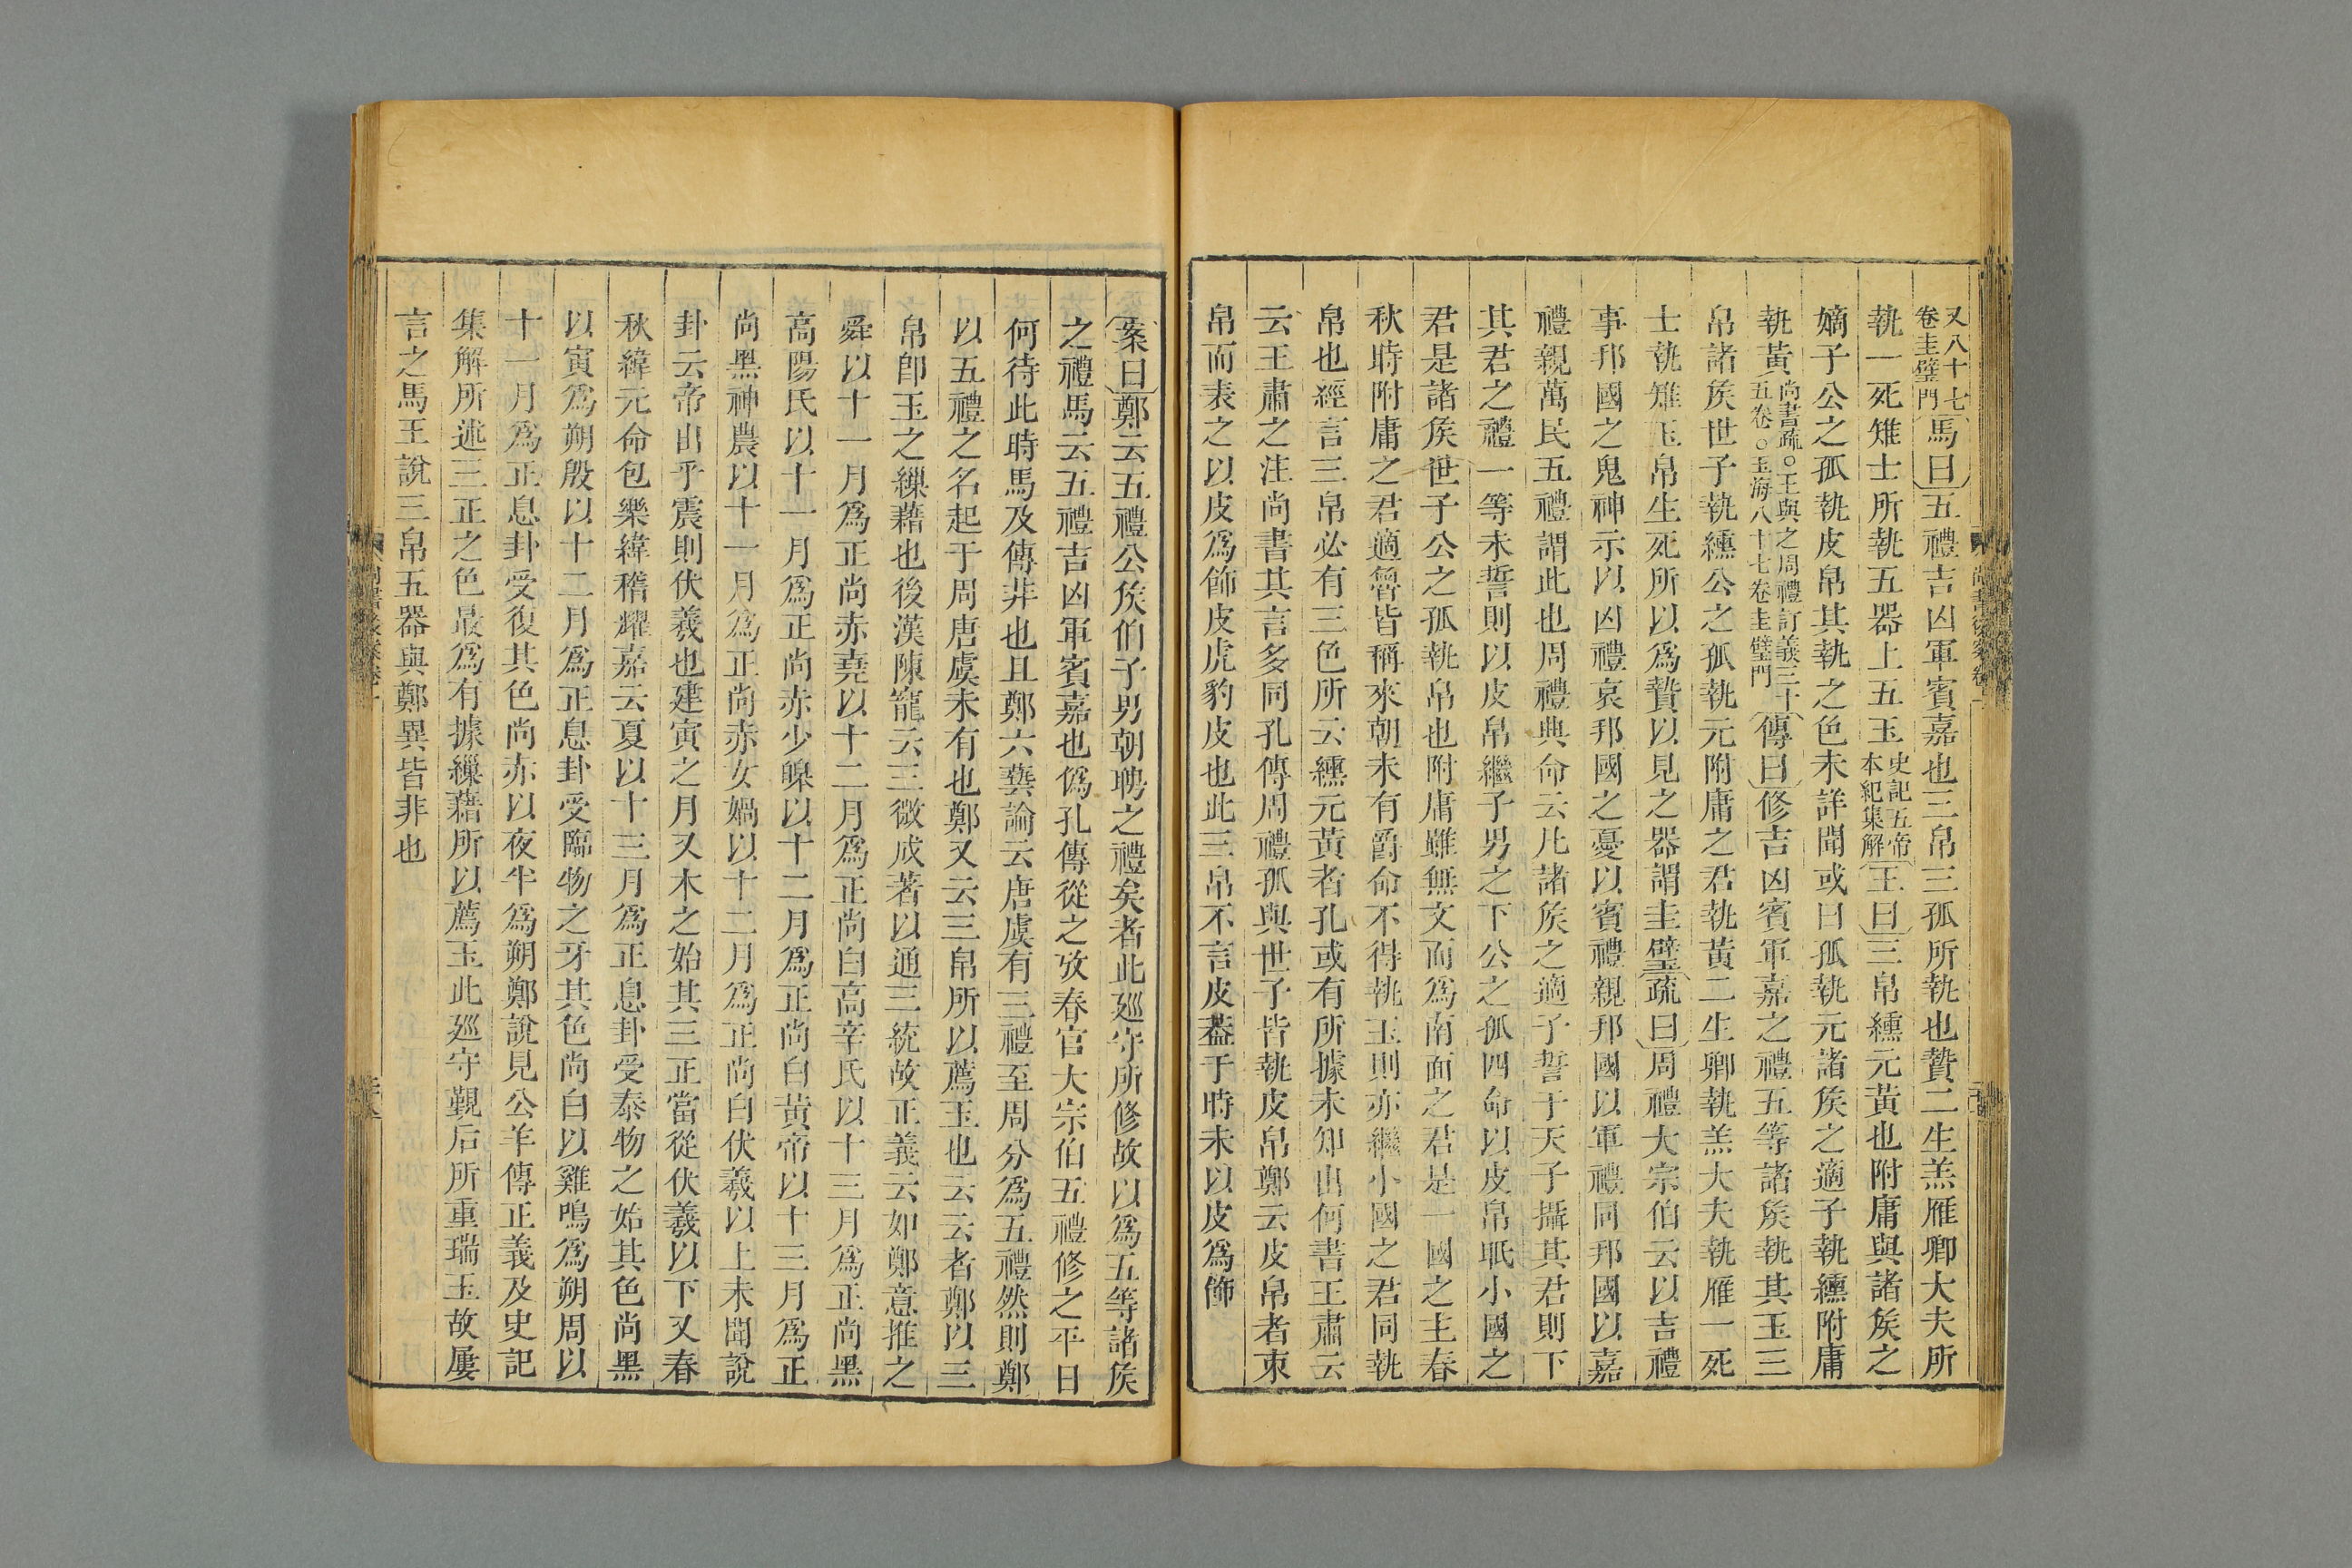 又八十七
卷圭璧門馬曰五禮吉凶軍賓嘉也三帛三孤所執也贄二生羔雁卿大夫所
執一死雉士所執五器上五玉史記五帝本紀集解王曰三帛纁元黃也附庸與諸矦之
嫡子公之孤執皮帛其執之色未詳聞或曰孤執元諸矦之適子執纁附庸
執黃尚書疏○王與之周禮訂義三十五卷○玉海八十七卷圭璧門傳曰修吉凶賓軍嘉之禮五等諸矦執其玉三
帛諸矦世子執纁公之孤執元附庸之君執黃二生卿執羔大夫執雁一死
士執雉玉帛生死所以爲贄以見之器謂圭璧疏曰周禮大宗伯云以吉禮
事邦國之鬼神示以凶禮哀邦國之憂以賓禮親邦國以軍禮同邦國以嘉
禮親萬民五禮謂此也周禮典命云凡諸矦之適子誓于天子攝其君則下
其君之禮一等未誓則以皮帛繼子男之下公之孤四命以皮帛眡小國之
君是諸矦世子公之孤執帛也附庸雖無文而爲南面之君是一國之主春
秋時附庸之君適魯皆稱來朝未有爵命不得執玉則亦繼小國之君同執
帛也經言三帛必有三色所云纁元黃者孔或有所據未知出何書王肅云
云王肅之注尚書其言多同孔傳周禮孤與世子皆執皮帛鄭云皮帛者束
帛而表之以皮爲飾皮虎豹皮也此三帛不言皮葢于時未以皮爲飾
案曰鄭云五禮公矦伯子男朝聘之禮矣者此廵守所修故以爲五等諸矦
之禮馬云五禮吉凶軍賓嘉也僞孔傳從之攷春官大宗伯五禮修之平日
何待此時馬及傳非也且鄭六藝論云唐虞有三禮至周分爲五禮然則鄭
以五禮之名起于周唐虞未有也鄭又云三帛所以薦玉也云云者鄭以三
帛卽玉之繅藉也後漢陳寵云三微成著以通三統故正義云如鄭意推之
舜以十一月爲正尚赤堯以十二月爲正尚白高辛氏以十三月爲正尚黑
高陽氏以十一月爲正尚赤少皞以十二月爲正尚白黃帝以十三月爲正
尚黑神農以十一月爲正尚赤女媧以十二月爲正尚白伏羲以上未聞說
卦云帝出乎震則伏羲也建寅之月又木之始其三正當從伏羲以下又春
秋緯元命包樂緯稽耀嘉云夏以十三月爲正息卦受泰物之始其色尚黑
以寅爲朔殷以十二月爲正息卦受臨物之牙其色尚白以雞鳴爲朔周以
十一月爲正息卦受復其色尚赤以夜半爲朔鄭說見公羊傳正義及史記
集解所述三正之色最爲有據繅藉所以薦玉此廵守覲后所重瑞玉故屢
言之馬王說三帛五器與鄭異皆非也